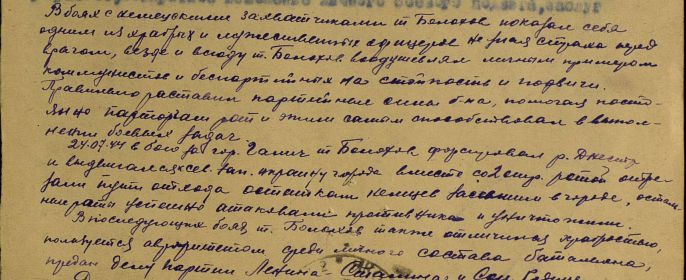 В боях с немецкими захватчиками т. Болохов показал себя
одним из храбрых и мужественных офицеров не зная страха перед
врагом, везде и всюду т. Болохов воодушевлял личным примером
коммунистов и беспартийных на стойкость и подвиги.
Правильно расставил партийные силы б-на, помогал посто-
янно парторгам рот и этим самым способствовал в выпол-
нении боевых задач.
24.07.44 в бою за гор. Галич т. Болохов форсировал р. Днестр
и выдвигаясь на сев. зап. окраину города вместе со 2 стр. ротой отре-
зали пути отхода остаткам немцев засевшим в городе,
роты успешно атаковали противника и уничтожили.
В последующих боях т. Болохов также отличился храбростью,
пользуется авторитетом среди личного состава батальона,
предан делу партии Ленина Сталина и Соц. Родине